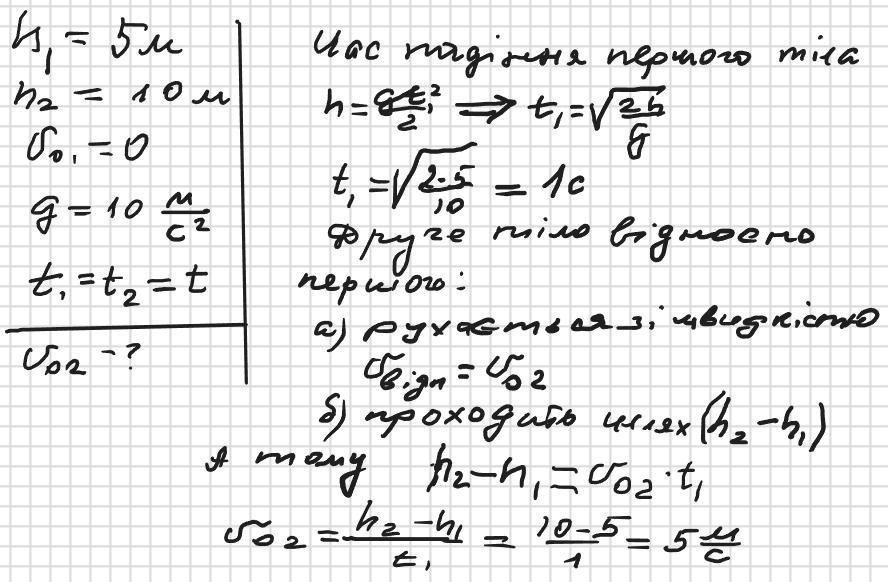 h₁ = 5м
h₂ = 10 м
υ₀₁ = 0
g = 10 м/с²
t₁ = t₂ = t
υ₀₂ - ?
Час падіння першого тіла
h = gt₁²/2 ⟹ t₁ = √(2h/g)
t₁ = √(2·5/10) = 1с
Друге тіло відносно
першого:
а) рухається зі швидкістю
υвідн = υ₀₂
б) проходить шлях (h₂ - h₁)
А тому h₂ - h₁ = υ₀₂ · t₁
υ₀₂ = (h₂ - h₁)/t₁ = (10 - 5)/1 = 5 м/с